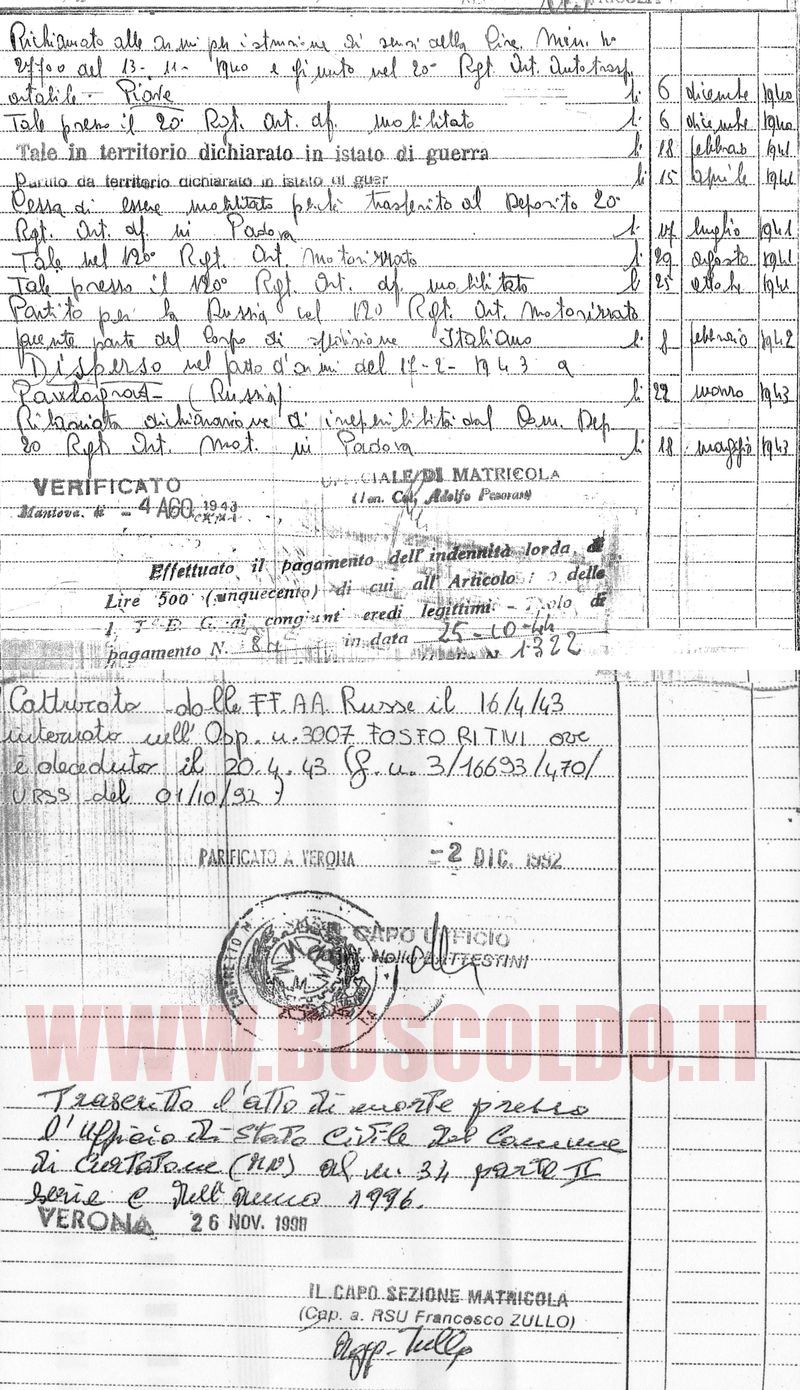 Richiamato alle armi per istruzione ai sensi della Circ. Min. N°
27700 del 13-11-1940 e giunto nel 20° Rgt. Art. Autotrasp
ortabile - Piave lì 6 dicembre 1940
Tale presso il 20° Rgt. Art. df. mobilitato lì 6 dicembre 1940
Tale in territorio dichiarato in istato di guerra lì 18 febbraio 1941
Partito da territorio dichiarato in istato di guer lì 15 aprile 1941
Cessa di essere mobilitato perché trasferito al Deposito 20°
Rgt. Art. df. in Padova lì 17 luglio 1941
Tale nel 120° Rgt. Art. Motorizzato lì 29 agosto 1941
Tale presso il 120° Rgt. Art. df. mobilitato lì 25 ottobre 1941
Partito per la Russia col 120 Rgt. Art. Motorizzato
facente parte del Corpo di spedizione Italiano lì 8 febbraio 1942
Disperso nel fatto d'armi del 17-2-1943 a
(Russia) lì 22 marzo 1943
Rilasciata dichiarazione di irreperibilità dal Com. Dep.
20 Rgt. Art. Mot. in Padova lì 18 maggio 1943
VERIFICATO
Mantova, lì - 4 AGO. 1943
UFFICIALE DI MATRICOLA
(Ten. Col. Adolfo
Effettuato il pagamento dell'indennità lorda, di
Lire 500 (cinquecento) di cui all'Articolo delle
ai congiunti eredi legittimi - Titolo di
pagamento N. in data 25-10-44
N. 1322
Catturato dalle FF.AA. Russe il 16/4/43
internato nell'Osp. n. 3007 FOSFORITNI ove
è deceduto il 20.4.43 (f. n. 3/16693/470/
URSS del 01/10/92)
PARIFICATO A VERONA - 2 DIC. 1992
IL CAPO UFFICIO
BATTESTINI
DISTRETTO M
WWW.BUSCOLDO.IT
Trascritto l'atto di morte presso
l'Ufficio di Stato Civile del Comune
di Curtatone (MN) al n. 34 parte II
serie C dell'anno 1996.
VERONA 26 NOV. 1998
IL CAPO SEZIONE MATRICOLA
(Cap. a. RSU Francesco ZULLO)